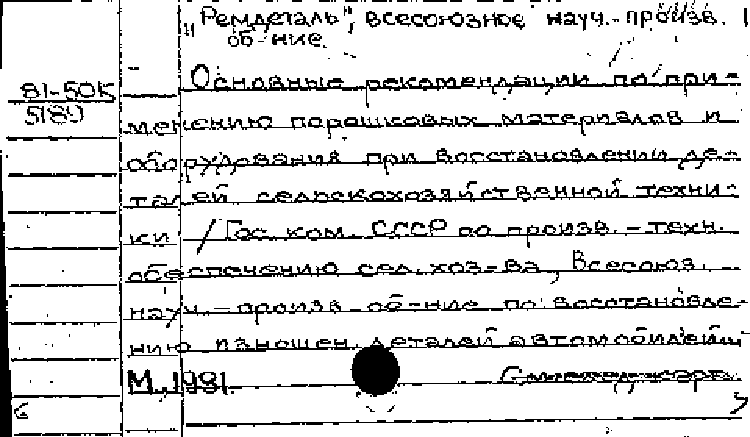 „Ремдеталь", всесоюзное науч.-произв.
об-ние.
81-50К
5180
Основные рекомендации по при-
менению порошковых материалов и
оборудования при восстановлении де-
талей сельскохозяйственной техни-
ки / Гос. ком. СССР по произв.-техн.
обеспечению сел. хоз-ва, Всесоюз.
науч.-произв. об-ние по восстановле-
нию изношен. деталей автомобилей
М., 1981.
6